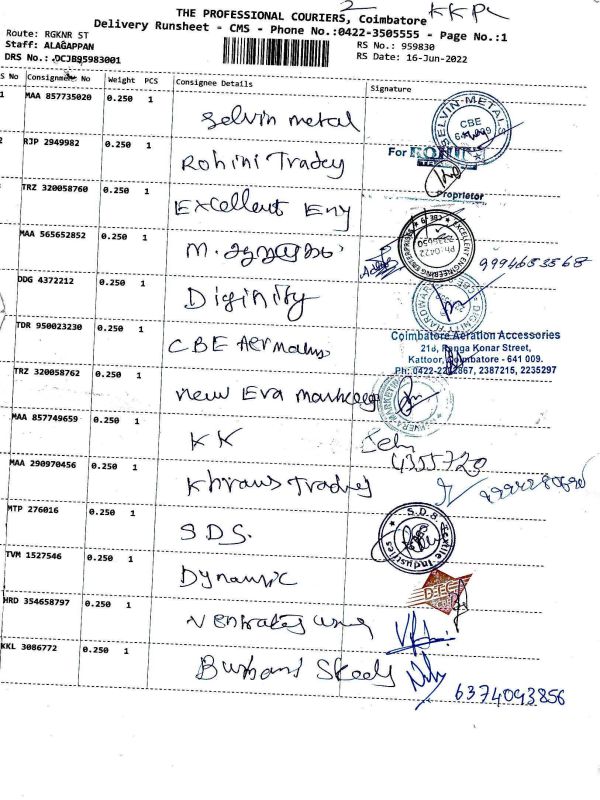 2 KKPL
THE PROFESSIONAL COURIERS, Coimbatore
Delivery Runsheet - CMS - Phone No.:0422-3505555 - Page No.:1
Route: RGKNR ST
Staff: ALAGAPPAN
DRS No.: DCJB95983001
RS No.: 959830
RS Date: 16-Jun-2022
S No Consignment No Weight PCS Consignee Details Signature
1 MAA 857735020 0.250 1 Selvin metal
SELVIN-METALS
CBE
2 RJP 2949982 0.250 1 Rohini Tradey
For ROHINI
Proprietor
TRZ 320058760 0.250 1 Excellent Eny
EXCELLENT ENGINEERING ENTERPRISES
Ph:0422
MAA 565652852 0.250 1 M.
9994683568
DDG 4372212 0.250 1 Diginity
TDR 950023230 0.250 1 CBE Aermation
Coimbatore Aeration Accessories
218, Ranga Konar Street,
Kattoor, Coimbatore - 641 009.
Ph: 0422-2232867, 2387215, 2235297
TRZ 320058762 0.250 1 new Eva
MAA 857749659 0.250 1 KK
4355720
MAA 290970456 0.250 1 Khraus Tradies
MTP 276016 0.250 1 S.D.S.
S.D.S Textile Industries
TVM 1527546 0.250 1 Dynamic
HRD 354658797 0.250 1
KKL 3086772 0.250 1
6374093856